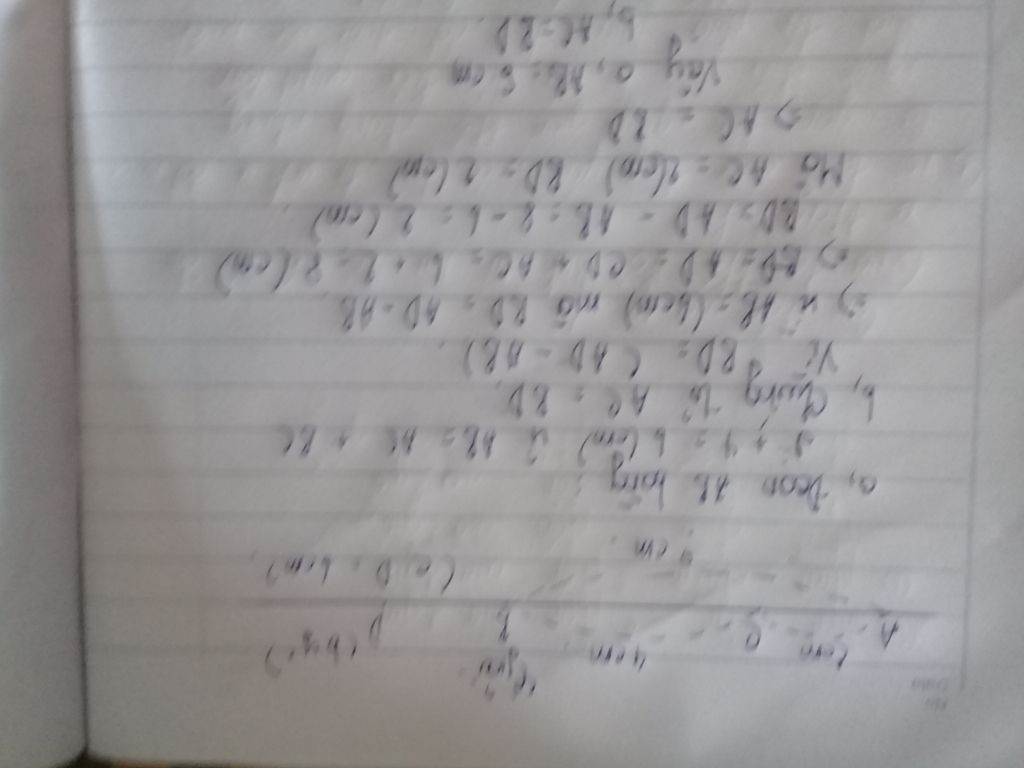 Giải
2cm 4cm (hyi)
A C B D
(CD = 6cm)
4cm.
a, Đoạn AB bằng :
2 + 4 = 6 (cm) vì AB = AC + BC
b, Chứng tỏ AC = BD.
Vì BD = (AD - AB).
=> vì AB = (6cm) mà BD = AD - AB
=> BD = AD = CD + AC = 6 + 2 = 8 (cm)
BD = AD - AB = 8 - 6 = 2 (cm).
Mà AC = 2 (cm) BD = 2 (cm)
=> AC = BD
Vậy a, AB = 6 cm
b, AC = BD.